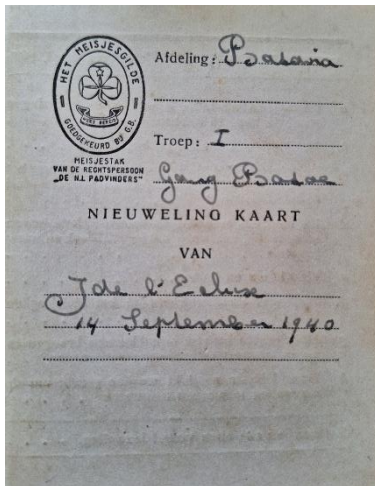 HET MEISJESGILDE
GOEDGEKEURD BIJ G.B.
MEISJESTAK
VAN DE RECHTSPERSOON
„DE N.I. PADVINDERS"
Afdeling: Batavia
Troep: I
Gang Batoe
NIEUWELING KAART
VAN
J de l'Ecluse
14 September 1940